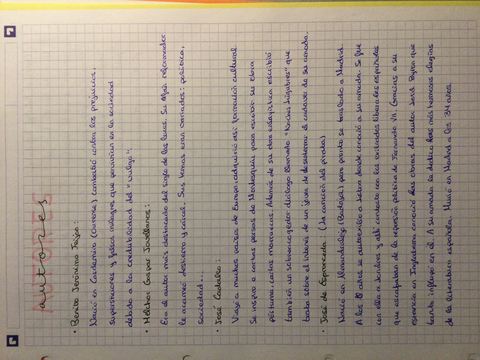 autores
• Benito Jerónimo Feijoo:
Nació en Casdemiro (Ourense) combatió contra los prejuicios,
supersticiones y falsos milagros que pervivían en la sociedad
debido a la credibilidad del "vulgo".
• Melchor Gaspar Jovellanos:
Era el autor más destacado del siglo de las luces. Su afán reformador
le acarreó destierro y cárcel. Sus temas eran variados: política,
sociedad...
• José Cadalso:
Viajó a muchos países de Europa adquirió así formación cultural.
Se inspiró a cartas persas de Montesquieu para escribir su obra
póstuma: cartas marruecas. Además de su obra ensayística escribió
también un sobrecogedor diálogo llamado "Noches lúgubres" que
trata sobre el intento de un joven de desenterrar el cadáver de su amada.
• José de Espronceda. (la canción del pirata)
Nació en Almendralejo (Badajoz) pero pronto se trasladó a Madrid.
A los 18 años se autoexilió a Lisboa donde conoció a su amada. Se fue
con ella a Londres y allí contactó con los exiliados liberales españoles
que escapaban de la represión política de Fernando VII. Gracias a su
estancia en Inglaterra conoció las obras del autor Lord Byron que
tanto influyó en él. A su amada le dedica las más hermosas elegías
de la literatura española. Murió en Madrid a los 34 años.